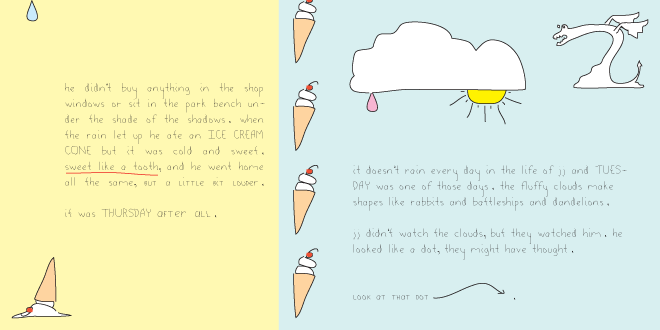 he didn't buy anything in the shop
windows or sit in the park bench un-
der the shade of the shadows. when
the rain let up he ate an ICE CREAM
CONE but it was cold and sweet.
sweet like a tooth, and he went home
all the same, BUT A LITTLE BIT LOUDER.
it was THURSDAY AFTER ALL.
it doesn't rain every day in the life of jj and TUES-
DAY was one of those days. the fluffy clouds make
shapes like rabbits and battleships and dandelions.
jj didn't watch the clouds, but they watched him. he
looked like a dot, they might have thought.
LOOK AT THAT DOT